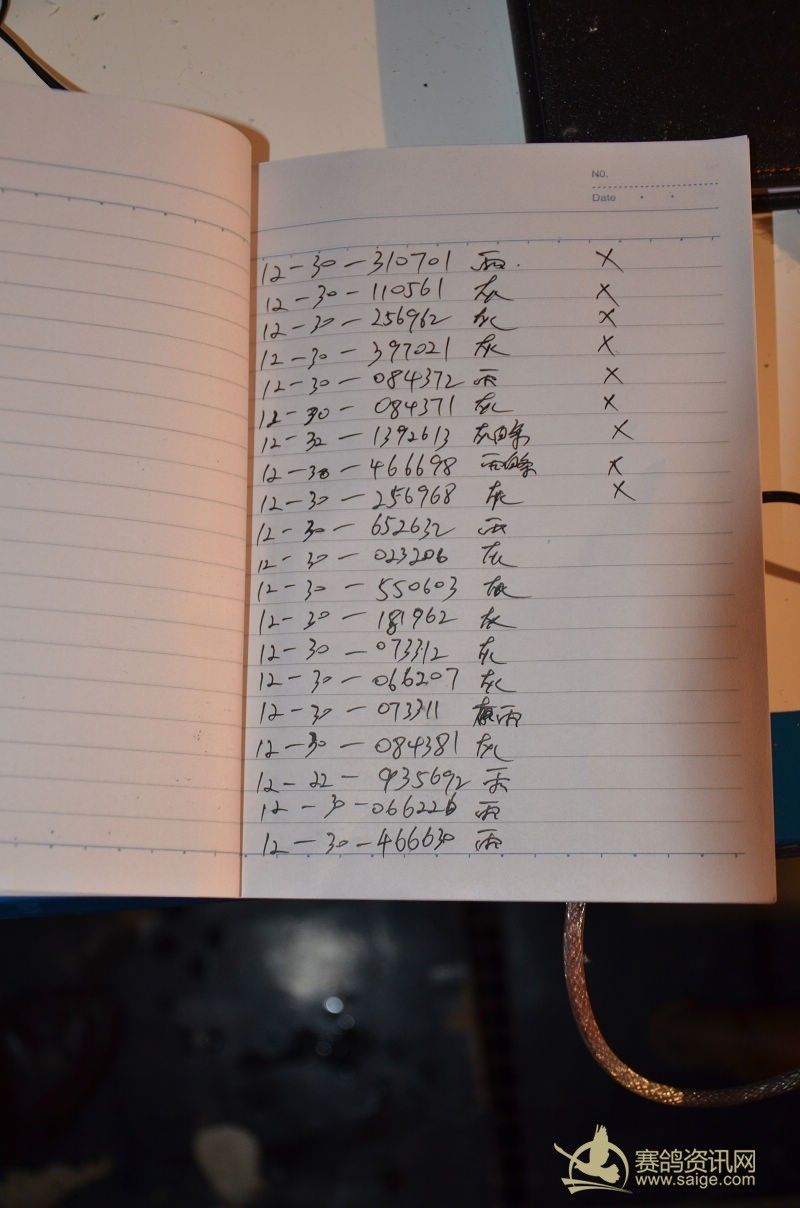 NO.
Date
12-30-310701 雨. ×
12-30-110561 灰 ×
12-30-256962 灰 ×
12-30-397021 灰 ×
12-30-084372 雨 ×
12-30-084371 灰 ×
12-32-1392613 灰白条 ×
12-30-466698 雨白条 ×
12-30-256968 灰 ×
12-30-652632 雨
12-30-023206 灰
12-30-550603 灰
12-30-181962 灰
12-30-073312 灰
12-30-066207 灰
12-30-073311 雨
12-30-084381 灰
12-22-935692 雨
12-30-066226 雨
12-30-466630 雨
赛鸽资讯网
www.saige.com